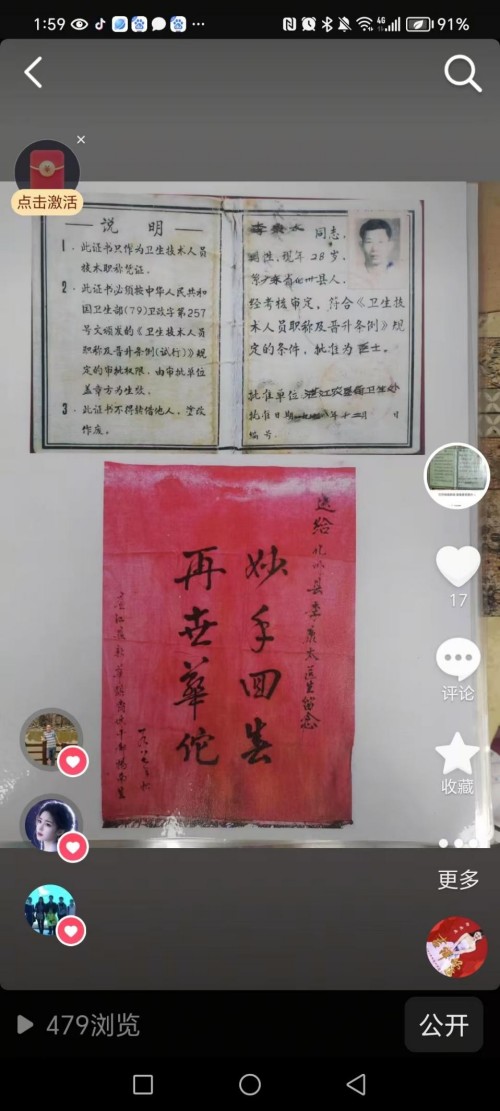 1:59
4G
91%
点击激活
说 明
1. 此证书只作为卫生技术人员
技术职称凭证.
2. 此证书必须按中华人民共和
国卫生部(79)卫政字第257
号文颁发的《卫生技术人员
职称及晋升条例(试行)》规
定的审批权限,由审批单位
盖章方为生效.
3. 此证书不得转借他人,涂改
作废.
同志,
性,现年28岁,
县人,
经考核审定,符合《卫生技
术人员职称及晋升条例》规
定的条件,批准为 士.
批准单位
批准日期 年十二月 日
编号.
送给
县李 太医生留念
妙手回春
再世华佗
17
评论
收藏
更多
479浏览
公开